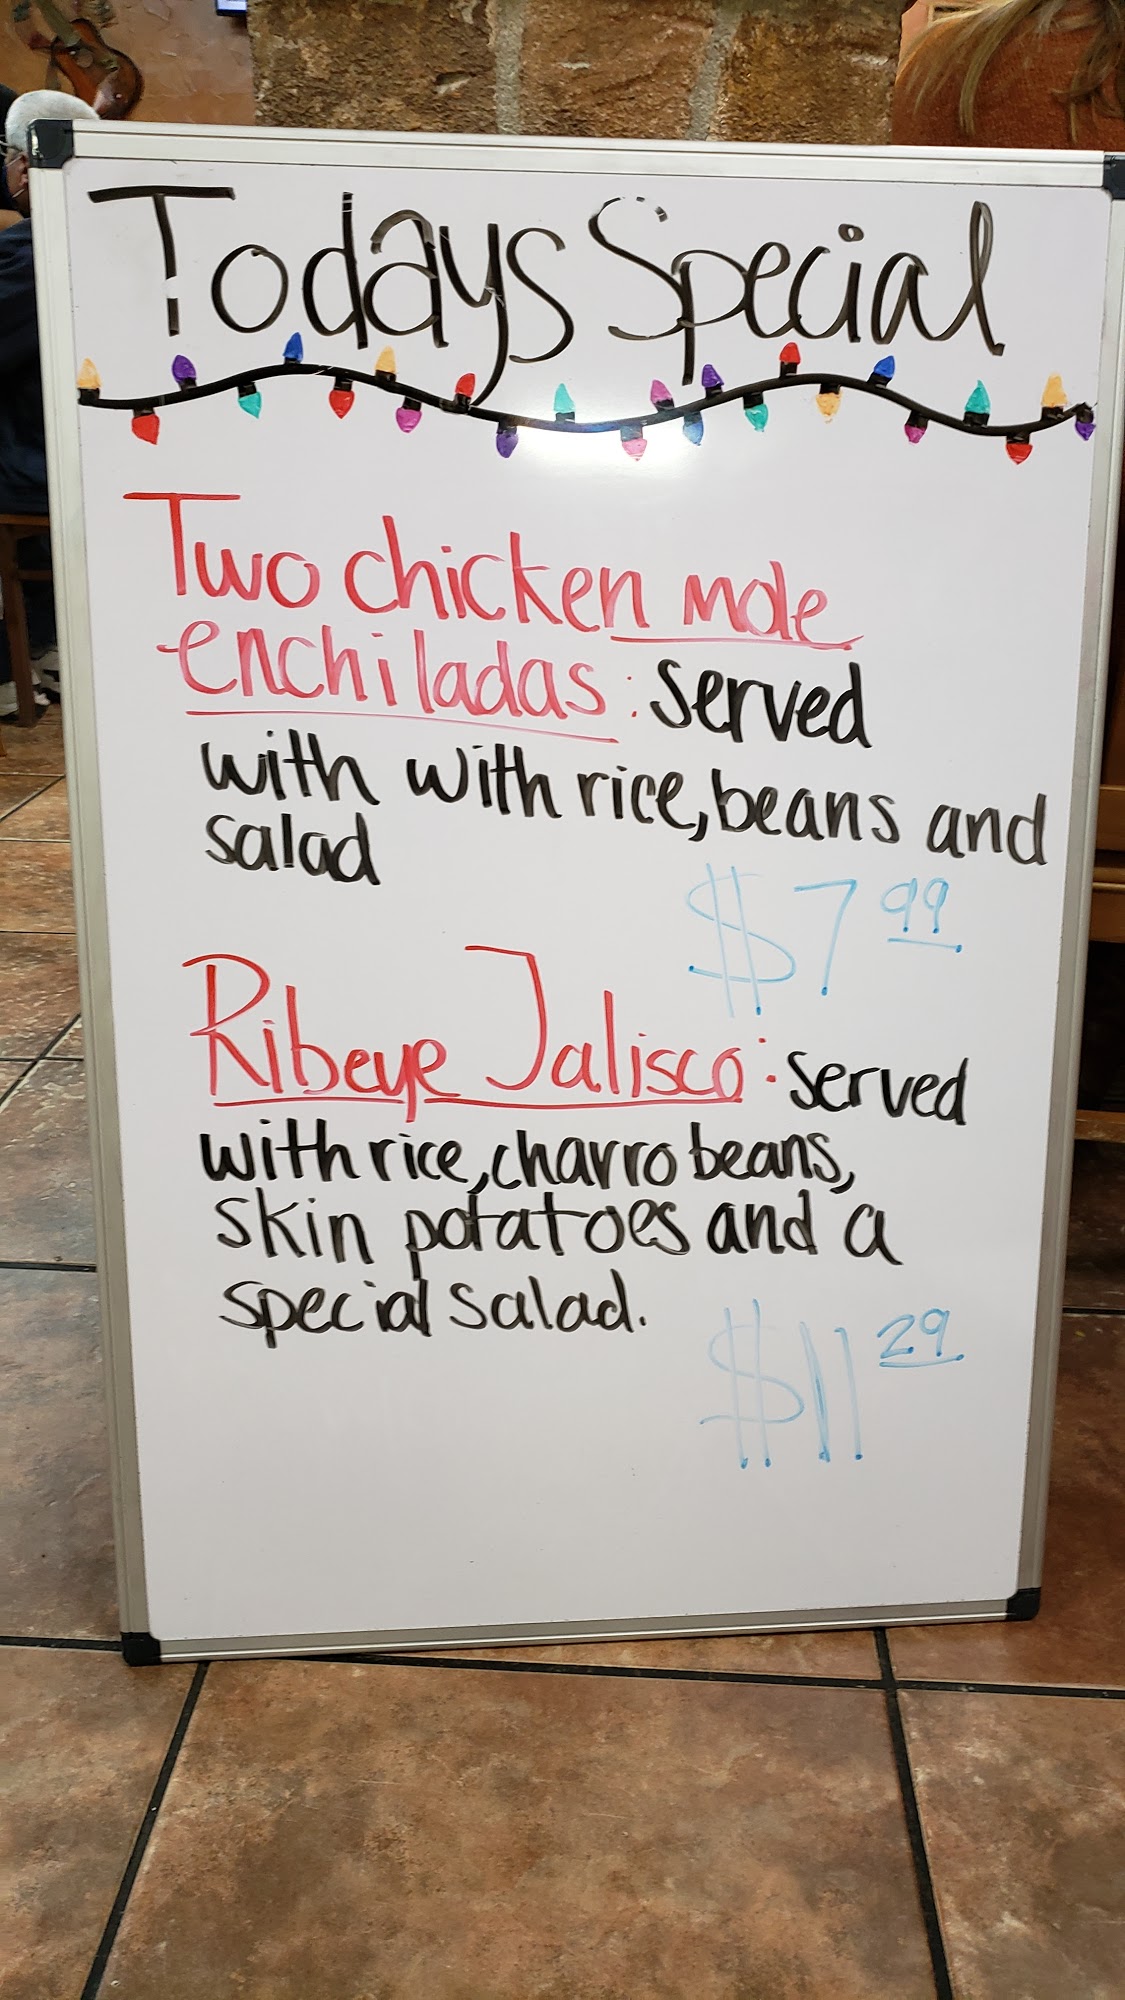 Todays Special
Two chicken mole
enchiladas: served
with with rice, beans and
salad
$7 99
Ribeye Jalisco: served
with rice, charro beans,
skin potatoes and a
special salad.
$11 29